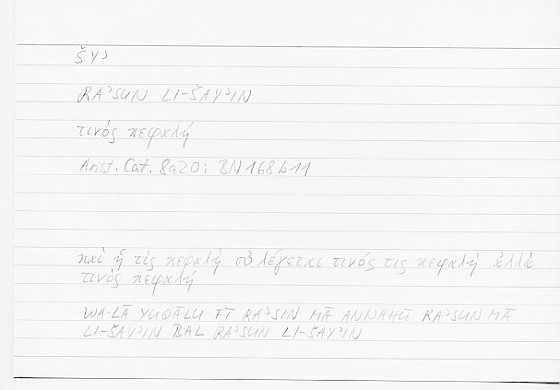 ŠYʾ
RAʾSUN LI-ŠAYʾIN
τινός κεφαλή
Arist. Cat. 8a20; BN 168b11
καὶ ἥ τίς κεφαλή οὐ λέγεται τινός τις κεφαλή ἀλλά
τινός κεφαλή
WA-LĀ YUQĀLU FĪ RAʾSIN MĀ ANNAHŪ RAʾSUN MĀ
LI-ŠAYʾIN BAL RAʾSUN LI-ŠAYʾIN